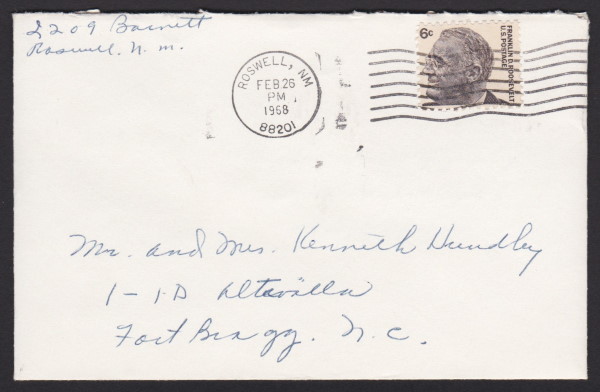 2209 Barnett
Roswell, N. M.
ROSWELL, NM
FEB 26
PM
1968
88201
6c
FRANKLIN D. ROOSEVELT
U.S. POSTAGE
Mr. and Mrs. Kenneth Hundley
1-1-D Altavilla
Fort Bragg. N. C.